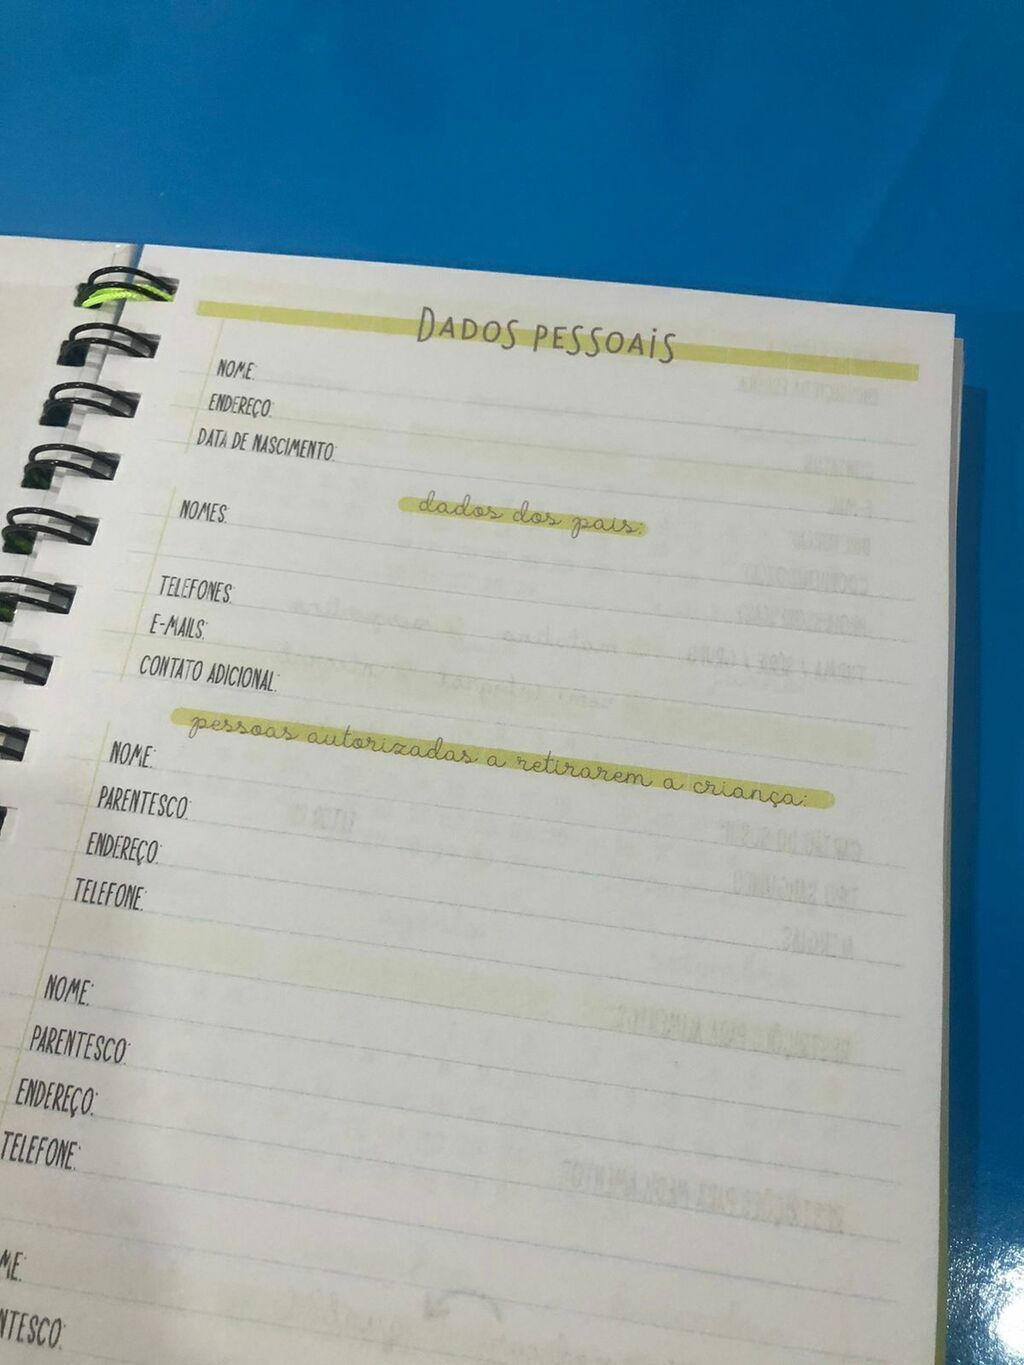 DADOS PESSOAIS
NOME:
ENDEREÇO:
DATA DE NASCIMENTO:
dados dos pais:
NOMES:
TELEFONES:
E-MAILS:
CONTATO ADICIONAL:
pessoas autorizadas a retirarem a criança:
NOME:
PARENTESCO:
ENDEREÇO:
TELEFONE:
NOME:
PARENTESCO:
ENDEREÇO:
TELEFONE:
ME:
NTESCO: